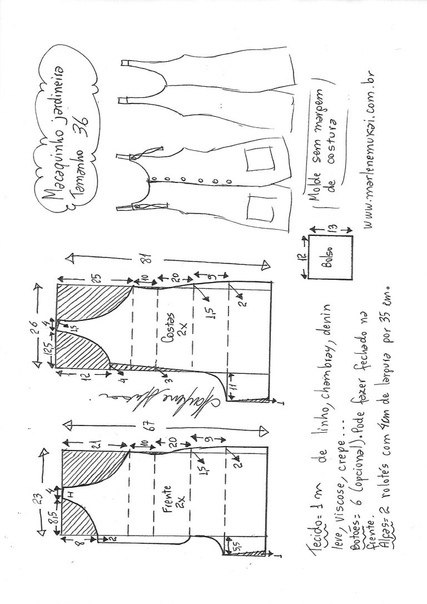 Macaquinho jardineira
Tamanho 36
Molde sem margem
de costura
www.marlenemukai.com.br
81
25
10
20
9
26
4
1,5
12,5
12
4
3
Costas
2x
1,5
2
11
1
12
13
Bolso
67
21
10
20
9
23
4
H
8,5
8
2
Frente
2x
1,5
2
5,5
1
Tecido= 1 m de linho, chambray, denin
leve, viscose, crepe...
Botões= 6 (opcional). Pode fazer fechado na
frente.
Alças= 2 rolotês com 4cm de largura por 35 cm.